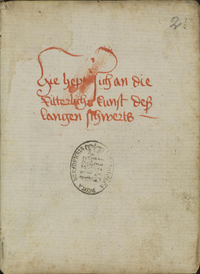 2
Hie hept sich an die
Ritterliche kunst deß
langen schwerts